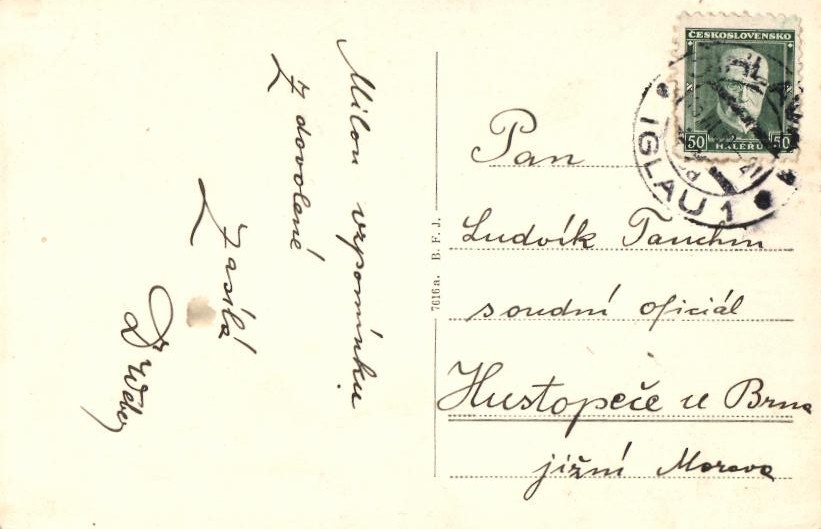 Milou vzpomínku
z dovolené
zasílá
Dr Weber
7616a. B. F. J.
ČESKOSLOVENSKO
50 HALÉŘŮ 50
IGLAU 1
Pan
Ludvík Tauchm
soudní oficiál
Hustopeče u Brna
jižní Morava